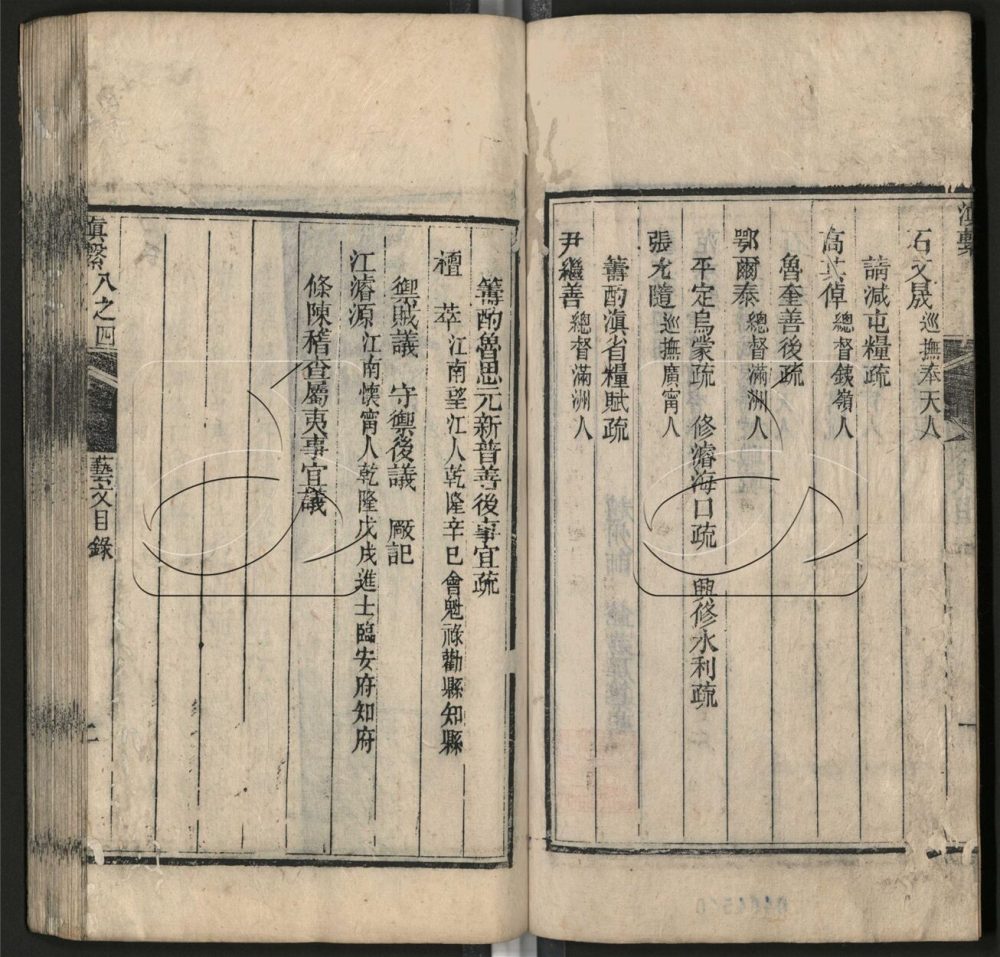 石文晟巡撫奉天人
請減屯糧疏
高其倬總督鐵嶺人
魯奎善後疏
鄂爾泰總督滿洲人
平定烏蒙疏 修濬海口疏 興修水利疏
張允隨巡撫廣甯人
籌酌滇省糧賦疏
尹繼善總督滿洲人
籌酌魯思元新普善後事宜疏
檀萃江南望江人乾隆辛巳會魁祿勸縣知縣
禦賊議 守禦後議 厰記
江濬源江南懷甯人乾隆戊戌進士臨安府知府
條陳稽查屬夷事宜議
滇繫八之四
藝文目錄
二